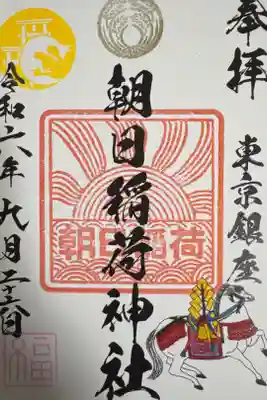 奉拝
東京銀座
朝日稲荷神社
朝日稲荷
令和六年九月二十三日
福